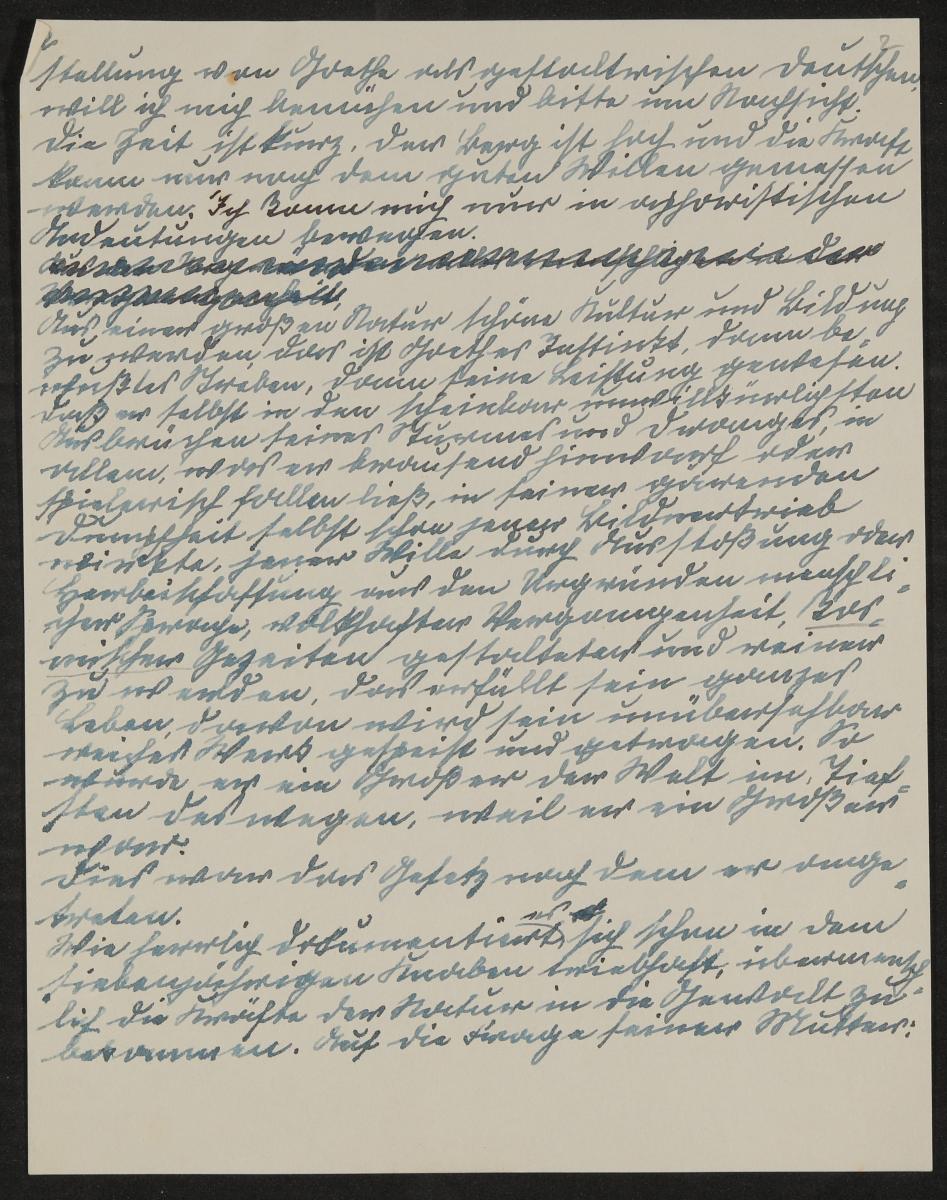 2
stellung von Goethe als gestaltrischen Deutschen,
will ich mich bemühen und bitte um Nachsicht.
Die Zeit ist kurz, der Berg ist hoch und die Kraft
kann nur nach dem guten Willen gemessen
werden. Ich kann mich nur in aphoristischen
Andeutungen bewegen.
Aus einer großen Natur schöne Kultur und Bildung
zu werden, das ist Goethes Instinkt, dann be-
wußtes Streben, dann seine Leistung gewesen.
daß er selbst in den scheinbar unwillkürlichsten
Ausbrüchen seines Sturmes und Dranges, in
allem, was er brausend hinwarf oder
spielerisch fallen ließ, in seiner gärenden
Dumpfheit selbst schon jener Bildnertrieb
wirkte, jener Wille durch Ausstoßung oder
Herbeischaffung aus den Urgründen menschli-
cher Sprache, volkhafter Vergangenheit, kos-
mischer Gezeiten gestalteter und reiner
zu werden, das erfüllt sein ganzes
Leben, davon wird sein unübersehbar
reiches Werk gespeist und getragen. So
wurde er ein Großer der Welt im Tief-
sten deswegen, weil er ein Großer
war.
Dies war das Gesetz nach dem er ange-
treten.
Wie herrlich dokumentiert es sich schon in dem
siebenjährigen Knaben triebhaft, übermensch-
lich die Kräfte der Natur in die Gewalt zu
bekommen. Auf die Frage seiner Mutter: